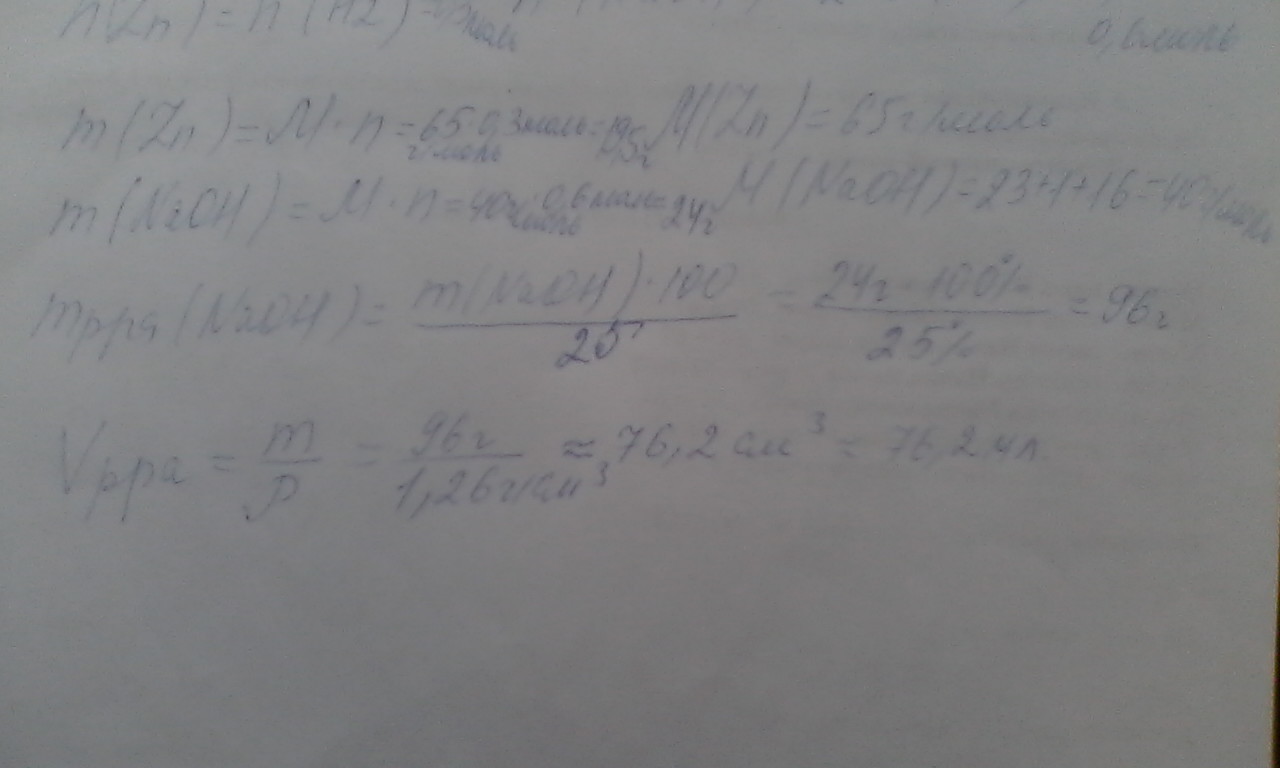 n(Zn) = n(H2) = 0,3 моль
0,6 моль
m(Zn) = M · n = 65 г/моль · 0,3 моль = 19,5 г M(Zn) = 65 г/моль
m(NaOH) = M · n = 40 г/моль · 0,6 моль = 24 г M(NaOH) = 23+1+16 = 40 г/моль
mр-ра(NaOH) = m(NaOH) · 100 / 25 = 24 г · 100% / 25% = 96 г
Vр-ра = m / ρ = 96 г / 1,26 г/см³ ≈ 76,2 см³ = 76,2 мл